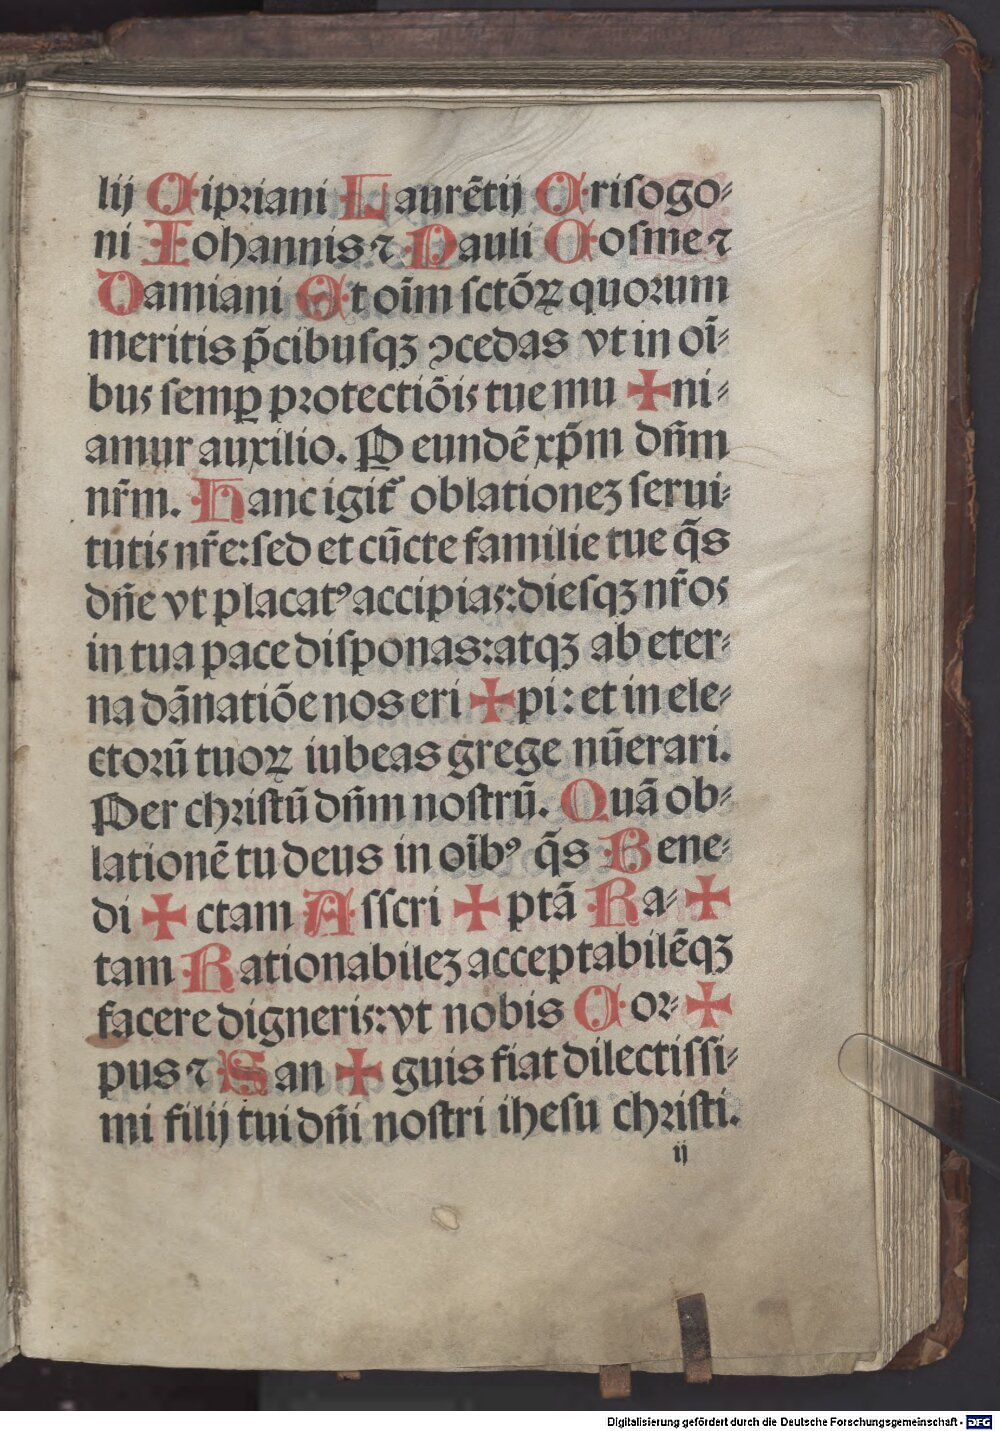 lij Cipriani Laurētij Crisogo⸗
ni Iohannis ⁊ Pauli Cosme ⁊
Damiani Et oı̄m sctōꝝ quorum
meritis p̄cibusqꝫ ꝯcedas vt in oı̄⸗
bus semꝑ protectiōis tue mu ✠ ni⸗
amur auxilio. P eundē xp̄m dn̄m
nr̄m. Hanc igit᷑ oblationeꝫ serui⸗
tutis nr̄e: sed et cūcte familie tue q̄s
dn̄e vt placatꝰ accipias: diesqꝫ nr̄os
in tua pace disponas: atqꝫ ab eter⸗
na dānatiōe nos eri ✠ pi: et in ele⸗
ctorū tuoꝝ iubeas grege nūerari.
Per christū dn̄m nostrū. Quā ob⸗
lationē tu deus in oı̄bꝰ q̄s Bene⸗
di ✠ ctam Asscri ✠ ptā Ra⸗ ✠
tam Rationabileꝫ acceptabilēqꝫ
facere digneris: vt nobis Cor⸗ ✠
pus ⁊ San ✠ guis fiat dilectissi⸗
mi filij tui dn̄i nostri ihesu christi.
ij
Digitalisierung gefördert durch die Deutsche Forschungsgemeinschaft - DFG